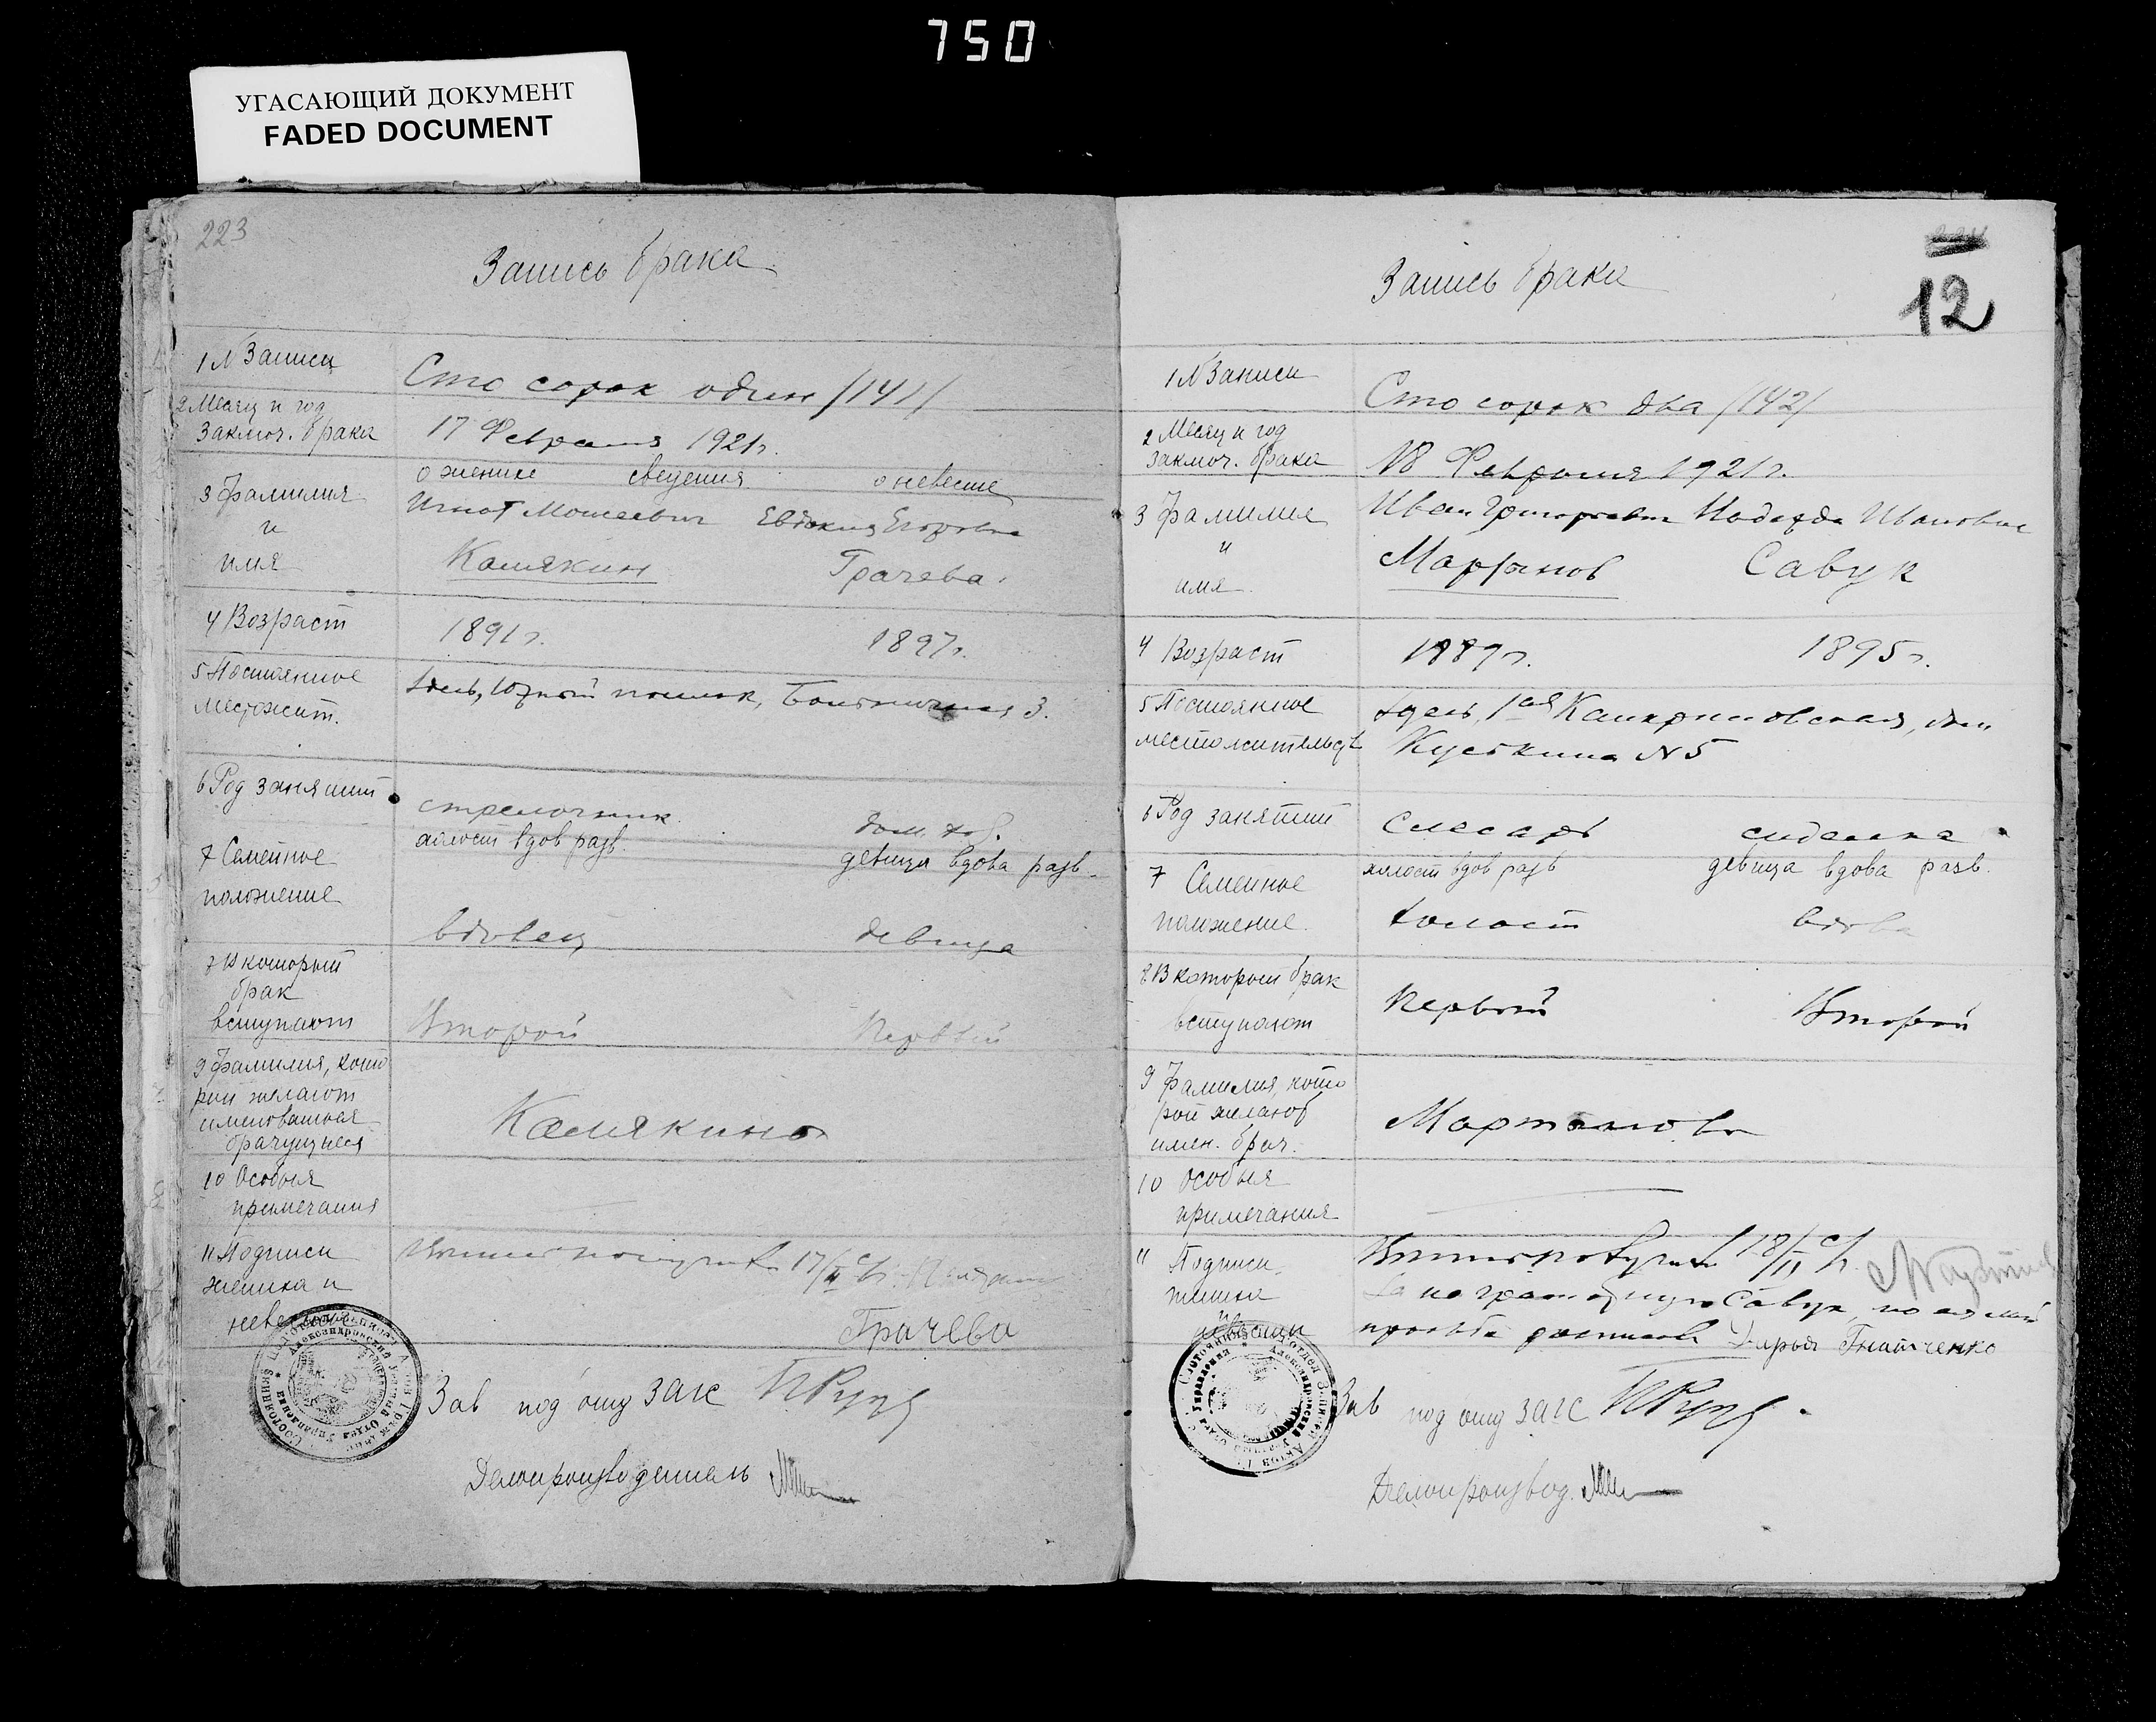 750
УГАСАЮЩИЙ ДОКУМЕНТ
FADED DOCUMENT
223
Запись брака
1 N Записи
Сто сорок один /141/
2 Месяц и год
заключ. брака
17 Февраля 1921г.
о женихе сведения о невесте
3 Фамилия
и
имя
Игнат Моисеевич Евдокия Егоровна
Камякин Грачева.
4 Возраст
1891г. 1897г.
5 Постоянное
местожит.
здесь, Южный поселок, 3.
6 Род занятий
стрелочник дом. хоз.
7 Семейное
положение
холост вдов разв. девица вдова разв.
вдовец девица
7 В который
брак
вступают
Второй Первый
9 Фамилия, кото
рой желают
именоваться
брачущиеся
Камякины
10 Особыя
примечания
11 Подписи
жениха и
невесты
17/II с/г.
Грачева
Зав под отд ЗАГС
Делопроизводитель
12
Запись брака
1 N Записи
Сто сорок два /142/
2 Месяц и год
заключ. брака
18 Февраля 1921г.
3 Фамилия
и
имя
Иван Григорьевич Надежда Ивановна
Мартынов Савук
4 Возраст
1889г. 1895г.
5 Постоянное
местожительств
здесь, 1ая дом
N 5
6 Род занятий
Слесарь сиделка
7 Семейное
положение
холост вдов разв девица вдова разв.
холост вдова
8 В который брак
вступают
Первый Второй
9 Фамилия, кото
рой желают
имен. брач.
Мартыновы
10 Особыя
примечания
11 Подписи
жениха
и
невесты
18/II с/г.
За неграмотную Савук, по ея личной
просьбе расписалась Дарья Гнатченко
Зав под отд ЗАГС
Делопроизвод.